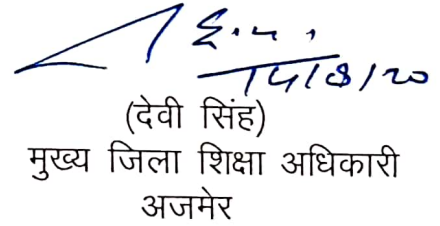 14/8/20
(देवी सिंह)
मुख्य जिला शिक्षा अधिकारी
अजमेर